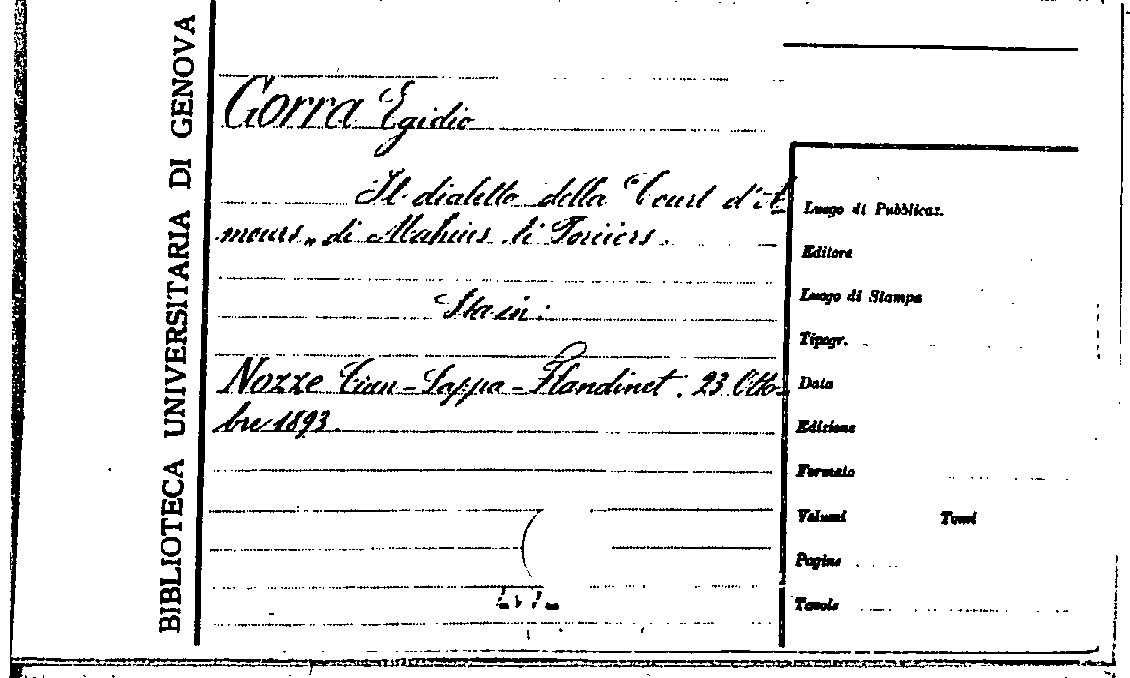 BIBLIOTECA UNIVERSITARIA DI GENOVA
Gorra Egidio
Il dialetto della "Court d'A
mours„ di Mahius li Poriiers.
Sta in:
Nozze Cian-Sappa-Flandinet. 23 Otto-
bre 1893.
Luogo di Pubblicaz.
Editore
Luogo di Stampa
Tipogr.
Data
Edizione
Formato
Volumi Tomi
Pagine
Tavole